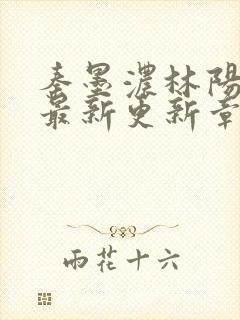 秦墨濃林陽
最新更新章
雨花十六